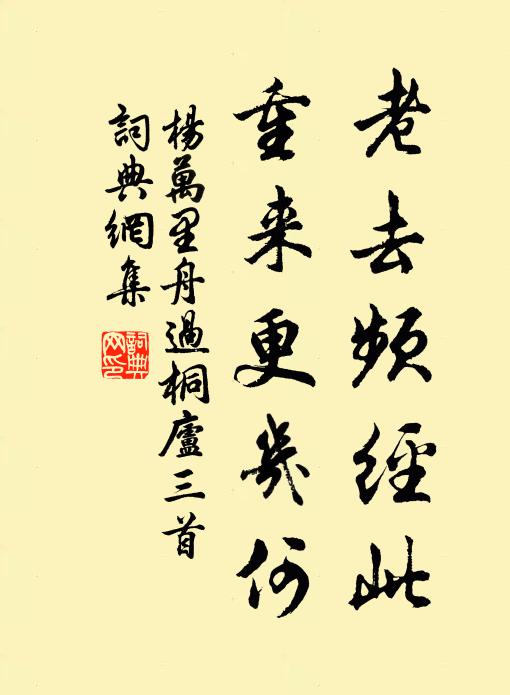 老去頻經此
重来更幾何
楊萬里舟過桐廬三首
詞典網集
詞典網印